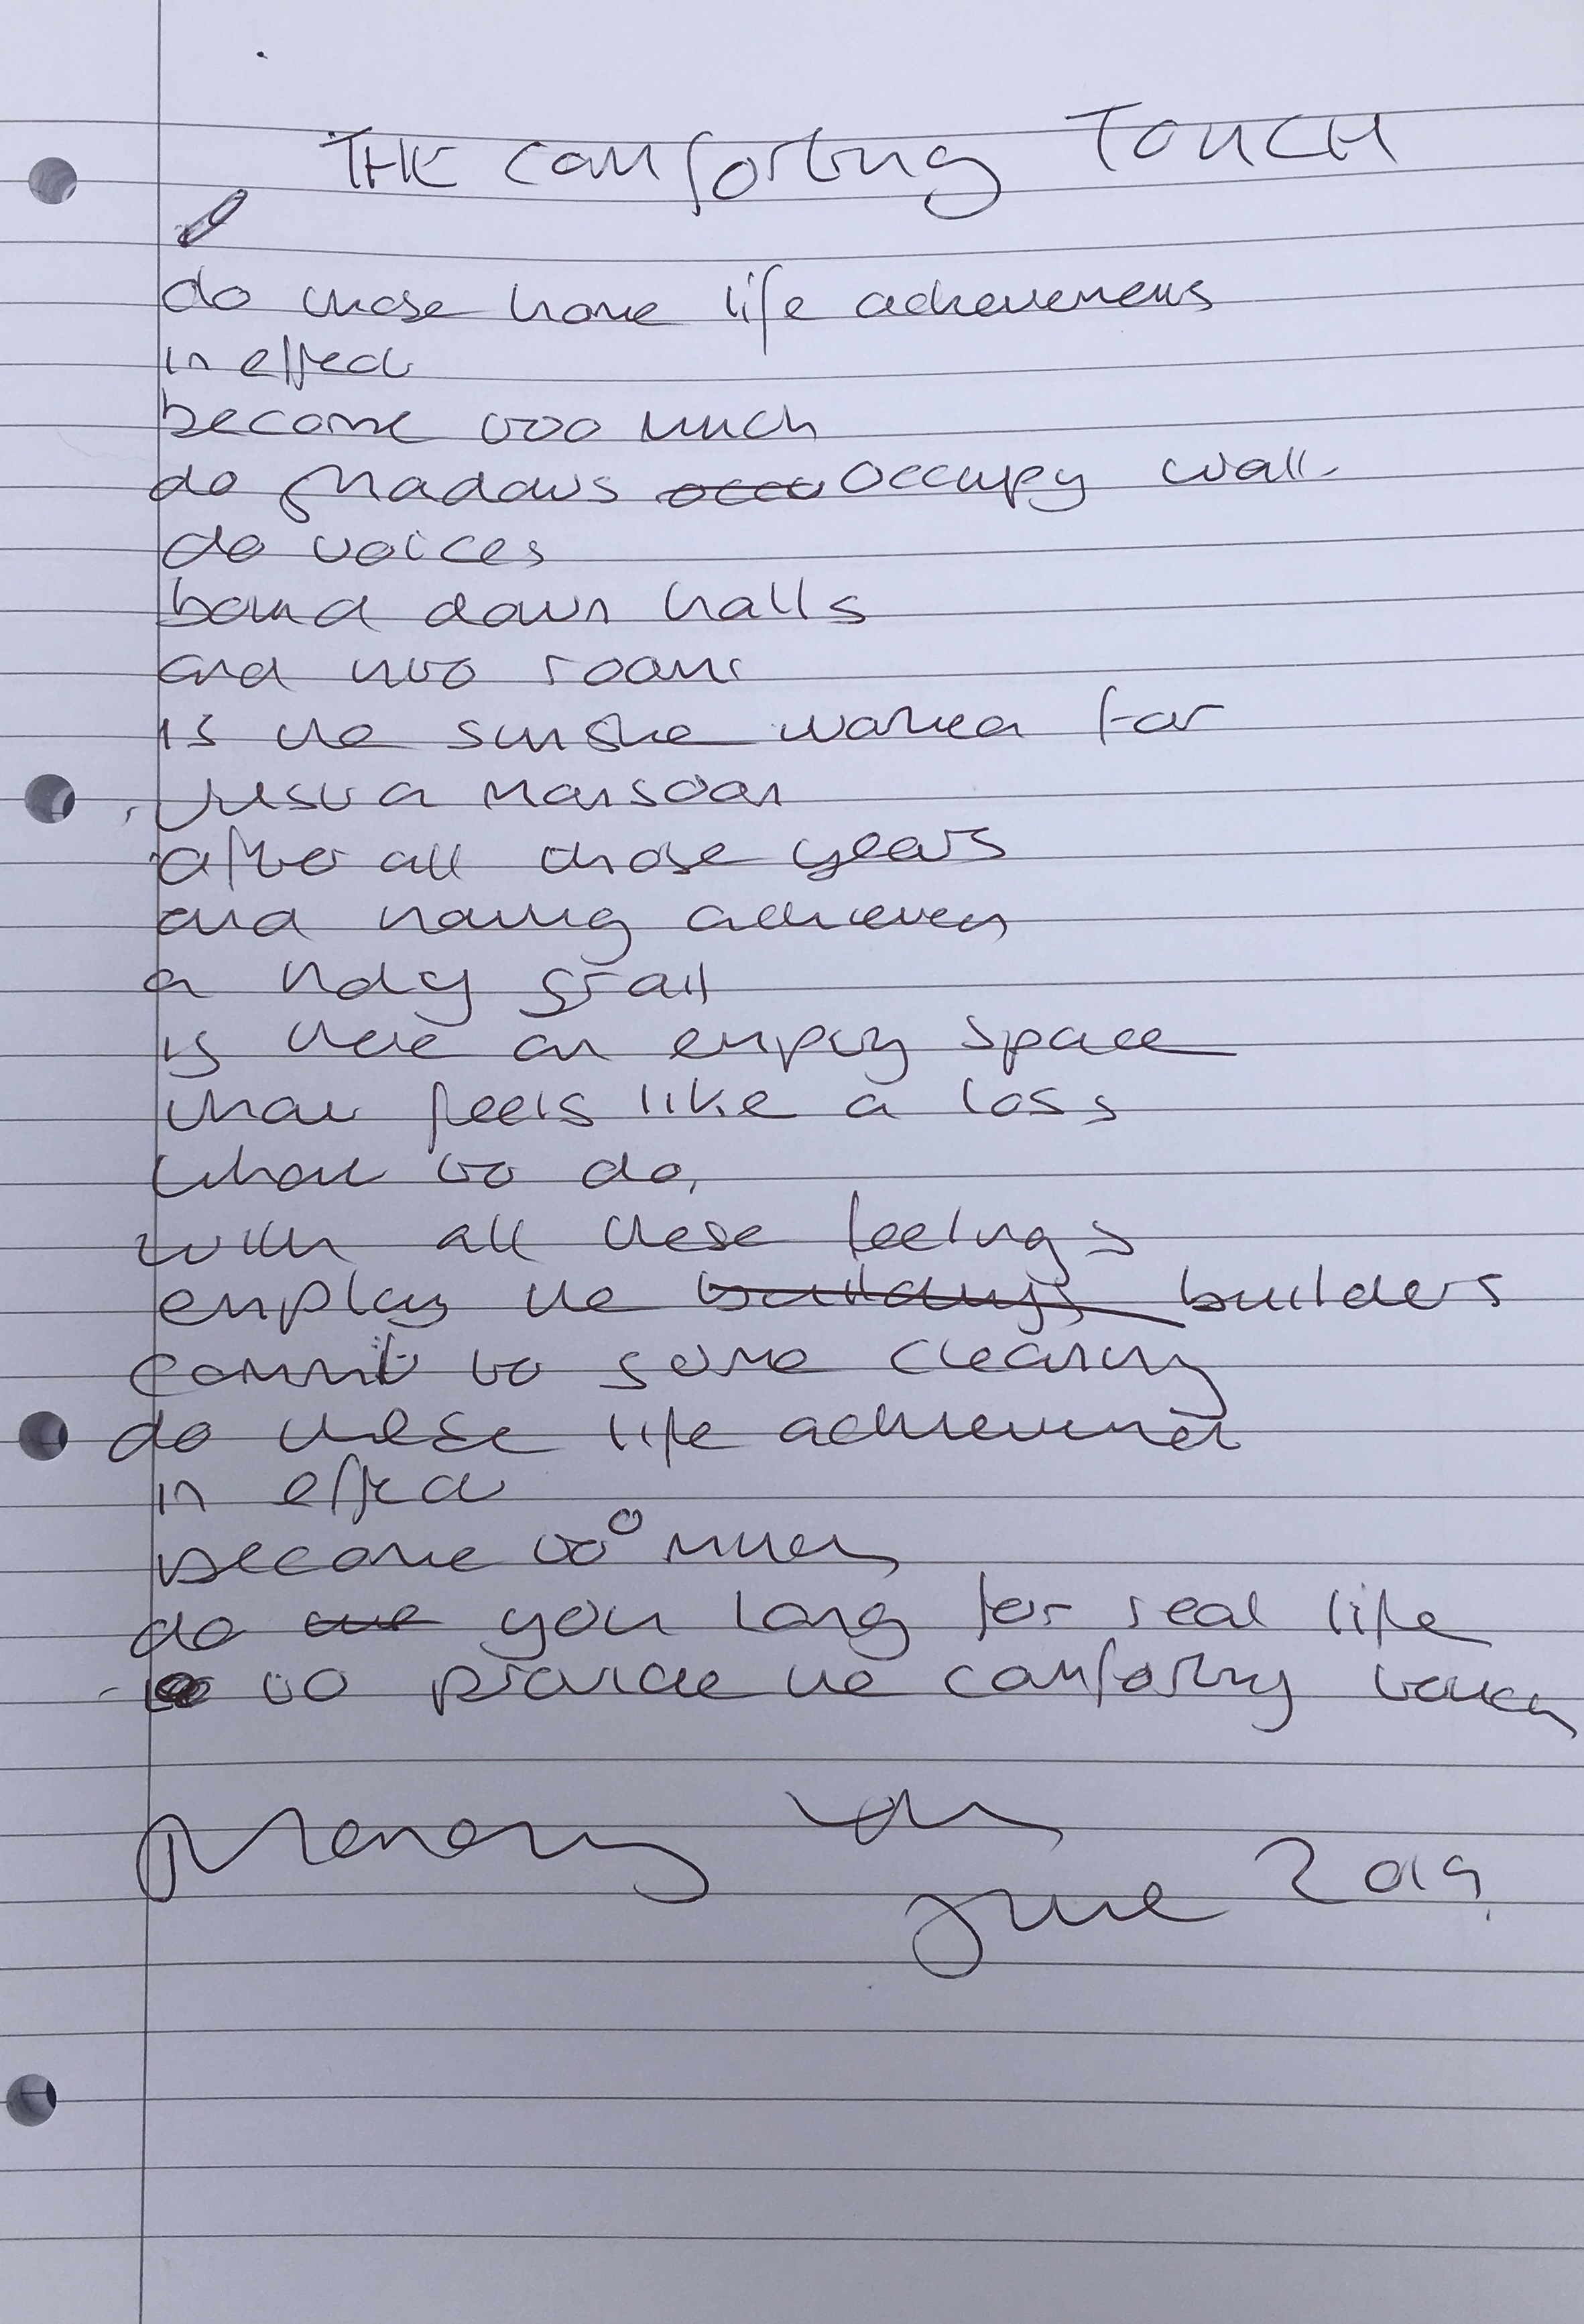 THE comforting TOUCH
do those home life achievements
in effect
become too much
do shadows occu occupy wall
do voices
bound down halls
and into rooms
is the sunshine waited for
just a monsoon
after all those years
and having achieved
a holy grail
is there an empty space
that feels like a loss
what to do,
with all these feelings
employ the buildings builders
commit to some cleaning
do these life achievements
in effect
become too much
do we you long for real life
to provide the comforting touch
June 2019